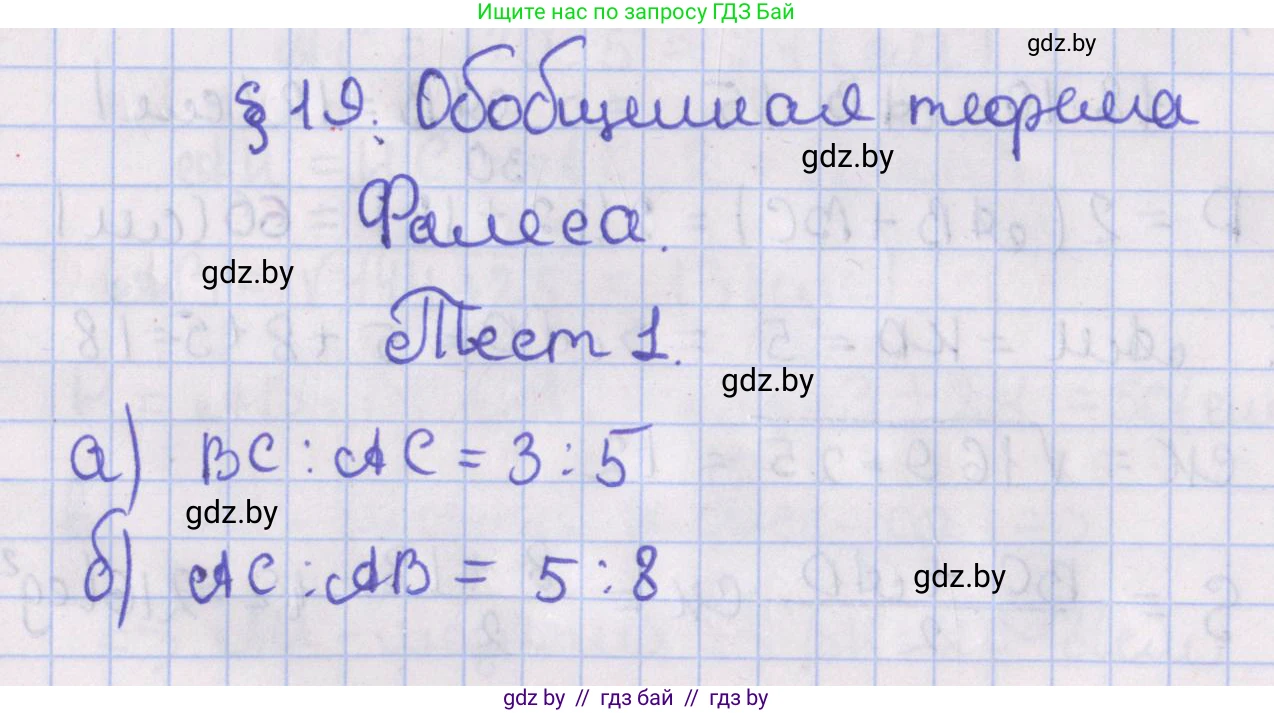 Ищите нас по запросу ГДЗ Бай
gdz.by
§ 19. Обобщенная теорема
gdz.by
Фалеса.
gdz.by
Тест 1.
gdz.by
а) BC : AC = 3 : 5
gdz.by
б) AC : AB = 5 : 8
gdz.by
gdz.by // гдз бай // гдз by